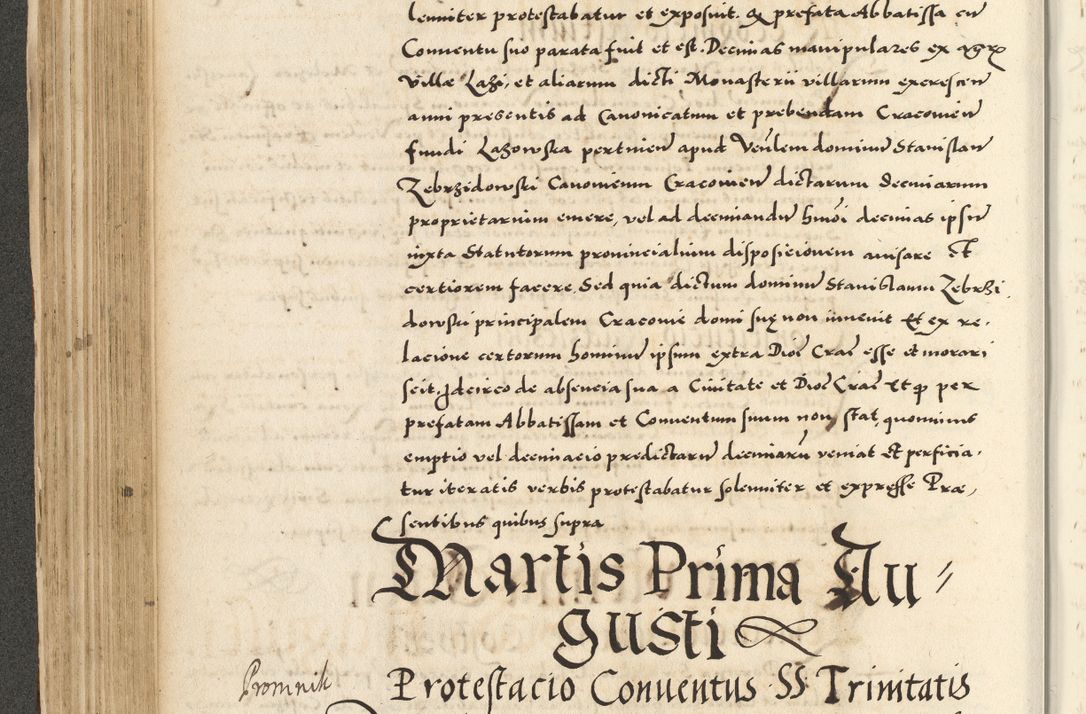 lenniter protestabatur et exposuit. & prefata Abbatissa cū
Conventu suo parata fuit et est. Decimas manipulares ex agr
Villæ Lazi, et aliarum dicti Monasterii villarum excrescen̄
anni presentis ad Canonicatum et prebendam Cracovien̄
fundi Lazowska pertinen̄ apud Ven̄lem dominū Stanislaū
Zebrzidowski Canonicum Cracovien̄ dictarum decimarum
proprietarium emere, vel ad decimandū hmōi decimas ipsū
iuxta Statutorum provincialium disposicionem avisare Et
certiorem facere. Sed quia dictum dominū Stanislaum Zebrzi
dowski principalem Cracovie domi suę non invenit Et ex re-
lacione certorum hominū ipsum extra Dioc̄ Crac̄ esse et morari
scit. Idcirco de absencia sua a Civitate et Dioc̄ Crac̄ et q per
prefatam Abbatissam et Conventum suum non stat, quominus
emptio vel decimacio predictarū decimarū veniat Et perficia-
tur iteratis verbis protestabatur solenniter et expresse Præ-
sentibus quibus supra
Martis Prima Au=
gusti
Promnik Protestacio Conventus SS Trinitatis